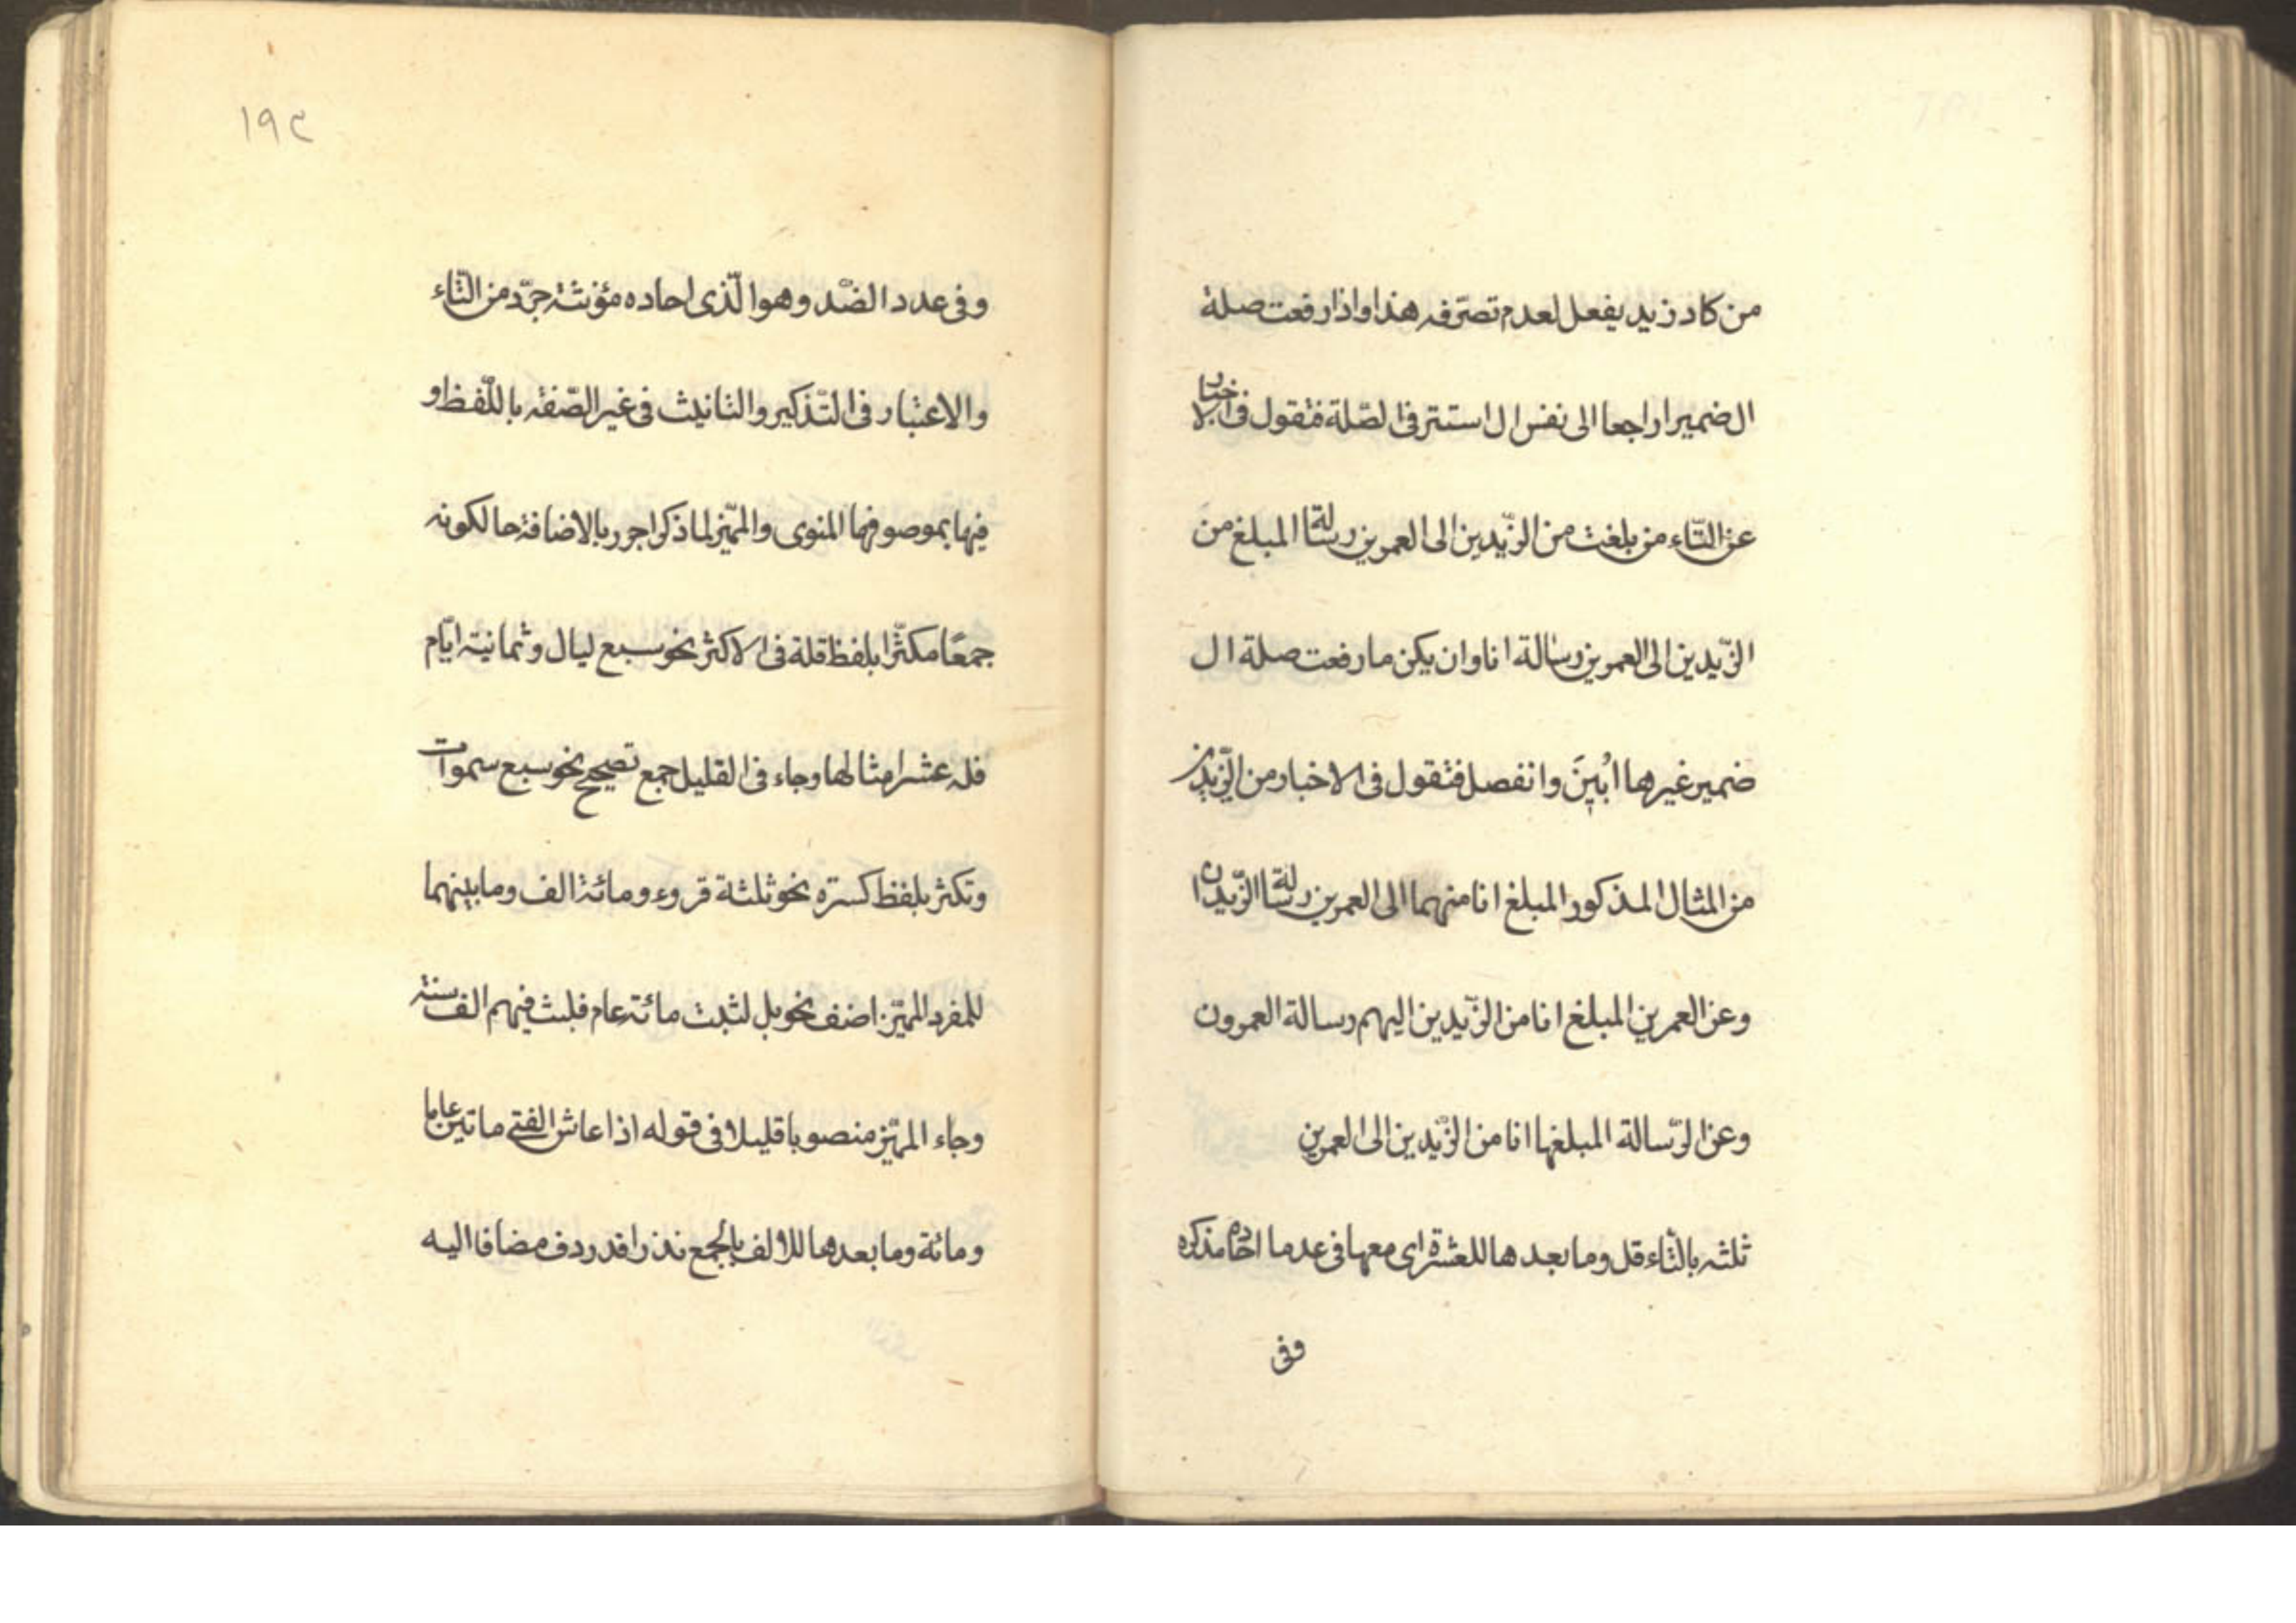 من كاد زيد يفعل لعدم تصرّفه هذا واذا رفعت صلة
ال ضميرا راجعا الى نفس ال استتر فى الصّلة فتقول فى الاخبار
عن التّاء من بلغت من الزّيدين الى العمرين رسالة المبلغ من
الزّيدين الى العمرين رسالة انا وان يكن ما رفعت صلة ال
ضمير غيرها ابُينَ وانفصل فتقول فى الاخبار من الزّيدين
من المثال المذكور المبلغ انا منهما الى العمرين رسالة الزّيدان
وعن العمرين المبلغ انا من الزّيدين اليهم رسالة العمرون
وعن الرّسالة المبلغها انا من الزّيدين الى العمرين
ثلثه بالتّاء قل وما بعدها للعشرة اى معها فى عدما احاده مذكره
وفى
١٩٤
وفى عدد الضّد وهو الّذى احاده مؤنثة جرّد من التّاء
والاعتبار فى التّذكير والتانيث فى غير الصّفة باللّفظ و
فيها بموصوفها المنوى والمميّز لما ذكر اجرر بالاضافة حالكونه
جمعًا مكثّرا بلفظ قلة فى الاكثر نحو سبع ليال وثمانية ايّام
فله عشر امثالها وجاء فى القليل جمع تصحيح نحو سبع سموات
وتكثر بلفظ كسرّه نحو ثلثة قروء ومائة الف وما بينهما
للمفرد المميّز اضف نحو بل لثبت مائة عام فلبث فيهم الف سنة
وجاء المميّز منصوبا قليلا فى قوله اذا عاش الفتى ماتين عاما
ومائة وما بعدها للالف بالجمع نذرا قد ردف مضافا اليه